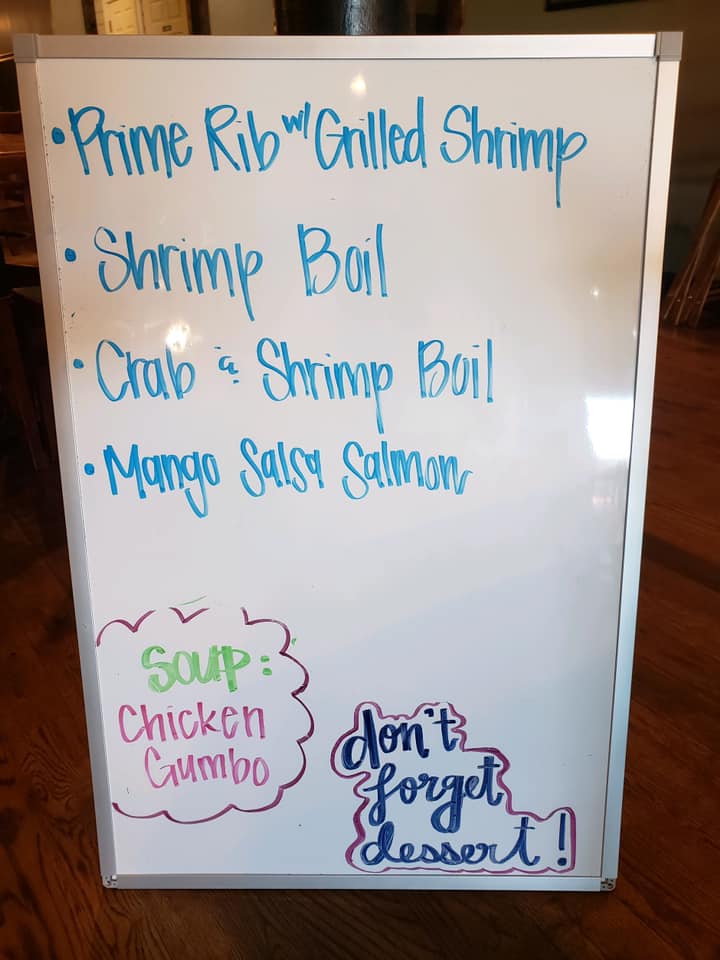 • Prime Rib w/ Grilled Shrimp
• Shrimp Boil
• Crab & Shrimp Boil
• Mango Salsa Salmon
Soup:
Chicken
Gumbo
don't
forget
dessert!